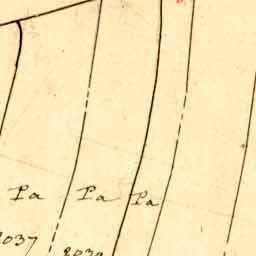 Pa Pa Pa
2037
2039